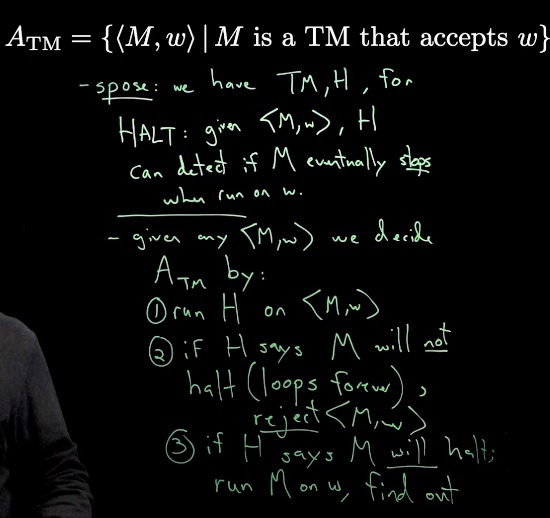 A_TM = {⟨M, w⟩ | M is a TM that accepts w}
- spose: we have TM, H, for
HALT: given <M,w>, H
can detect if M eventually stops
when run on w.
- given any <M,w> we decide
A_TM by:
① run H on <M,w>
② if H says M will not
halt (loops forever),
reject <M,w>
③ if H says M will halt;
run M on w, find out